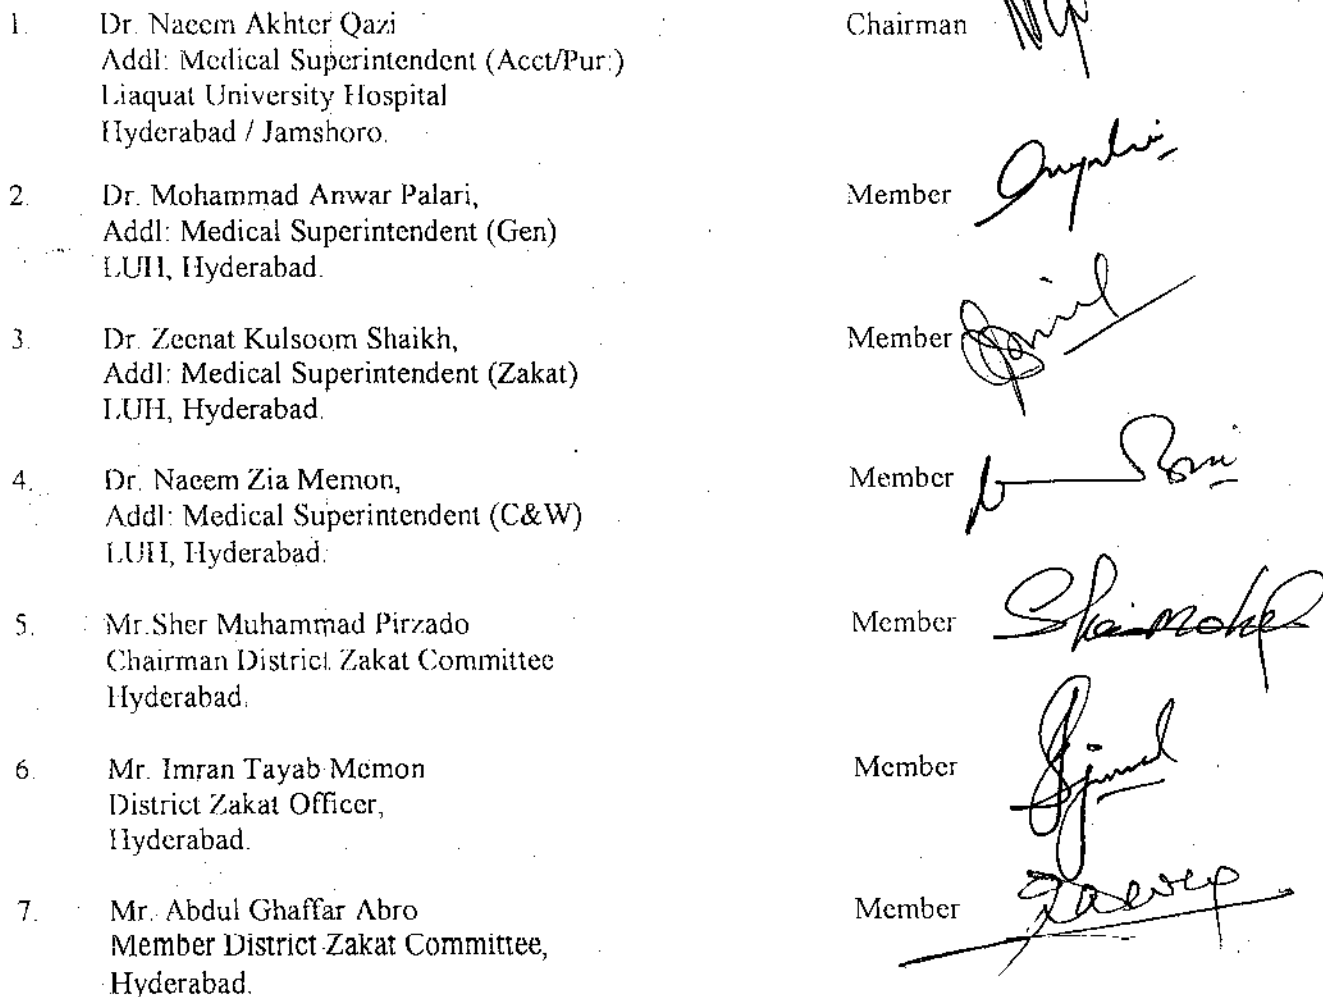 1. Dr. Naeem Akhter Qazi Chairman
Addl: Medical Superintendent (Acct/Pur:)
Liaquat University Hospital
Hyderabad / Jamshoro.
2. Dr. Mohammad Anwar Palari, Member
Addl: Medical Superintendent (Gen)
LUH, Hyderabad.
3. Dr. Zeenat Kulsoom Shaikh, Member
Addl: Medical Superintendent (Zakat)
LUH, Hyderabad.
4. Dr. Naeem Zia Memon, Member
Addl: Medical Superintendent (C&W)
LUH, Hyderabad.
5. Mr.Sher Muhammad Pirzado Member
Chairman District Zakat Committee
Hyderabad.
6. Mr. Imran Tayab Memon Member
District Zakat Officer,
Hyderabad.
7. Mr. Abdul Ghaffar Abro Member
Member District Zakat Committee,
Hyderabad.